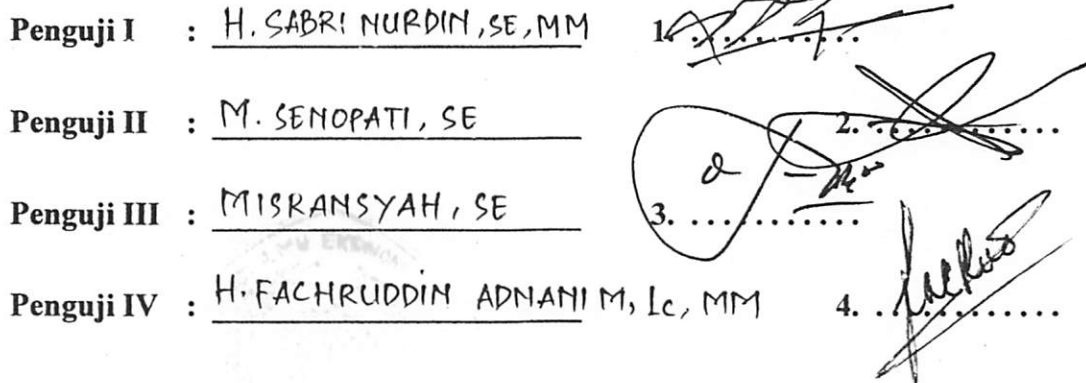 Penguji I : H. SABRI NURDIN, SE, MM 1. . . . . . . . . . . .
Penguji II : M. SENOPATI, SE 2. . . . . . . . . . . .
Penguji III : MISRANSYAH, SE 3. . . . . . . . . . . .
Penguji IV : H. FACHRUDDIN ADNANI M, Lc, MM 4. . . . . . . . . . . .